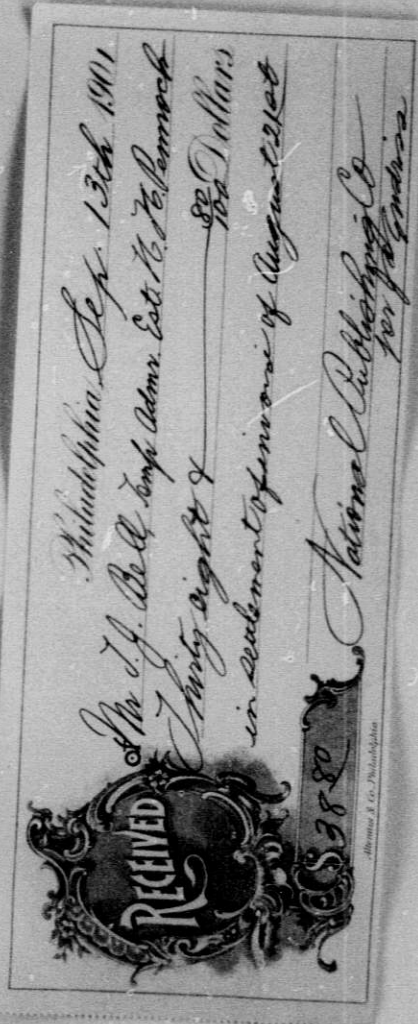 Philadelphia, Sep. 13th 1901
RECEIVED
of Mr T. J. Bell, Temp Admr. Est. H. H. Pennock
Thirty eight & 80/100 Dollars
in settlement of invoice of August 21st
National Publishing Co
per
$38 80
Altemus & Co. Philadelphia